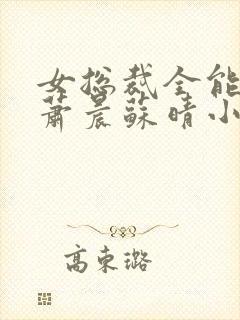 女总裁全能
萧晨苏晴小
高东璐